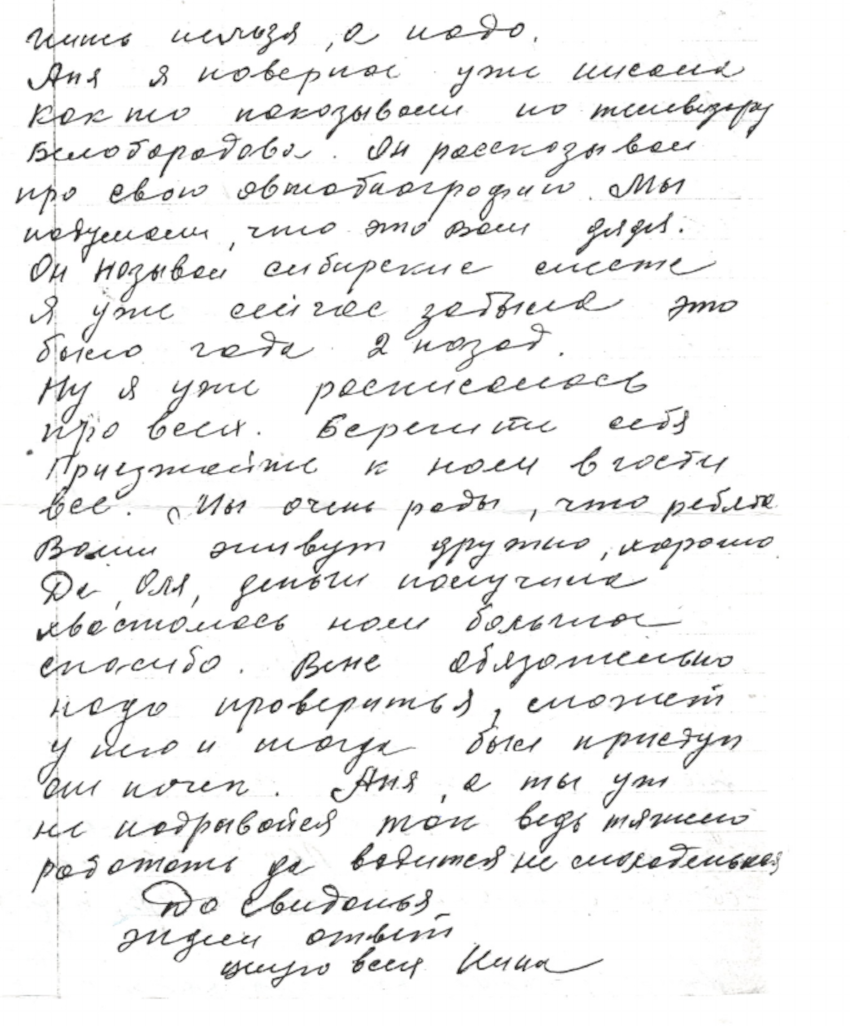 пить нельзя, а надо.
Аня я наверное уже писала
как то показывали по телевизору
Белобородова. Он рассказывал
про свою автобиографию. Мы
подумали, что это Ваш дядя.
Он называл сибирские места
я уже сейчас забыла это
было года 2 назад.
Ну я уже расписалась
про всех. Берегите себя
Приезжайте к нам в гости
все. Мы очень рады, что ребята
Ваши живут дружно, хорошо.
Да, Оля, деньги получила
хвасталась нам большое
спасибо. Вене обязательно
надо провериться, может
у него и тогда был приступ
от почек. Аня, а ты уж
не надрывайся так ведь тяжело
работать да водится не молоденькая
До свиданья
ждем ответ
целую всех Нина